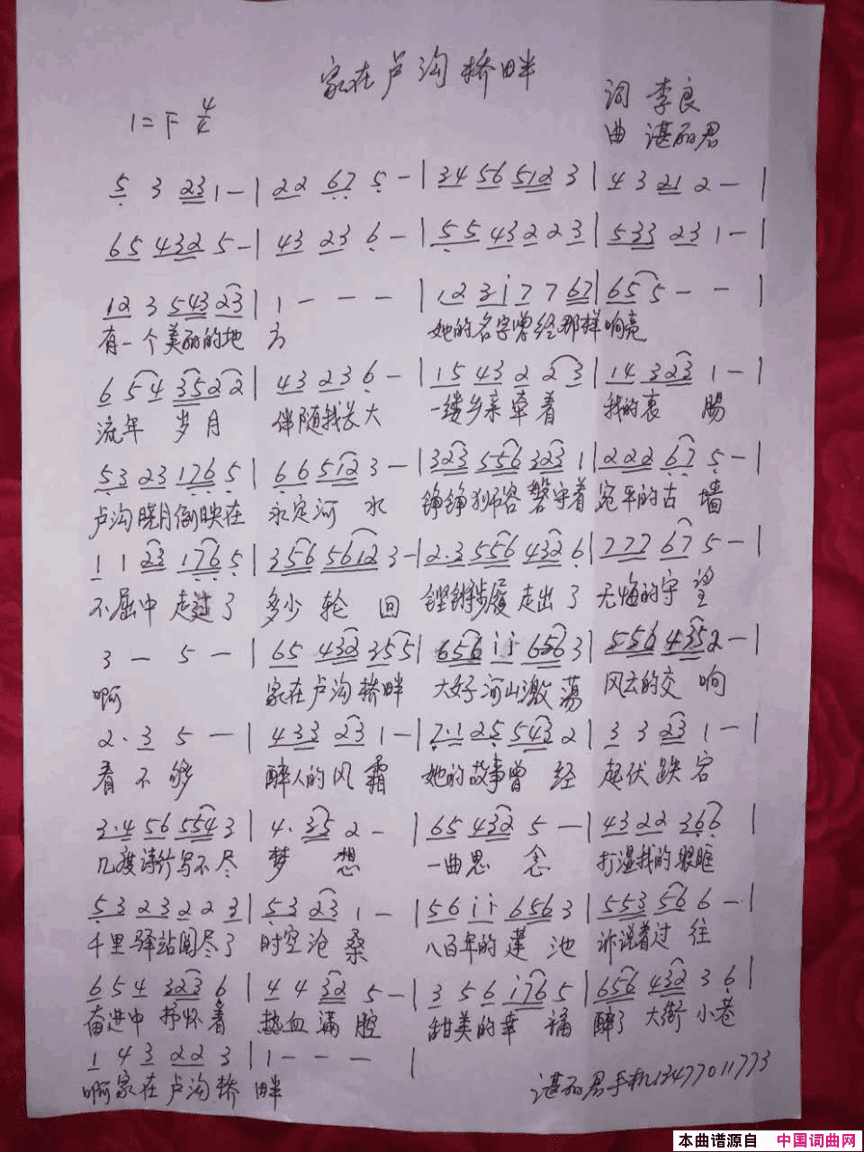 家在卢沟桥畔
词 李良
1=F 4/4
曲 谌丽君
5 3 23 1 - | 22 67 5 - | 34 56 512 3 | 4 3 21 2 - |
65 432 5 - | 43 23 6 - | 55 43 2 2 3 | 533 23 1 - |
12 3 543 23 | 1 - - - | 12 3 i 7 7 67 | 65 5 - - |
有一个美丽的地 方 她的名字曾经那样响亮
6 54 35 22 | 43 23 6 - | 15 43 2 23 | 14 323 1 - |
流年 岁月 伴随我长大 一缕乡亲牵着 我的衷 肠
53 23 176 5 | 66 512 3 - | 323 556 323 1 | 222 67 5 - |
卢沟晓月倒映在 永定河 水 铮铮狮容磐守着 宛平的古 墙
1 1 23 176 5 | 356 5612 3 - | 2·3 556 432 6 | 777 67 5 - |
不屈中 走过了 多少 轮 回 铿锵步履 走出了 无悔的守 望
3 - 5 - | 65 432 355 | 656 ii 656 3 | 556 435 2 - |
啊 家在卢沟桥畔 大好河山激 荡 风云的交 响
2· 3 5 - | 433 23 1 - | 7·1 25 543 2 | 3 3 23 1 - |
看 不 够 醉人的风 霜 她的故事曾 经 起伏跌宕
3·4 56 554 3 | 4· 35 2 - | 65 432 5 - | 43 22 366 |
几度诗行写不尽 梦 想 一曲思 念 打湿我的眼眶
53 23 2 2 3 | 53 23 1 - | 56 ii 656 3 | 553 56 6 - |
千里驿站阅尽了 时空沧 桑 八百年的莲 池 诉说着过 往
6 5 4 323 6 | 4 4 32 5 - | 3 5 6 i76 5 | 656 432 3 6 |
奋进中 抒怀着 热血 满 腔 甜美的幸 福 醉了 大街 小巷
1 4 3 22 3 | 1 - - - |
啊家在卢沟桥 畔
谌丽君手机13477011773
本曲谱源自 中国词曲网